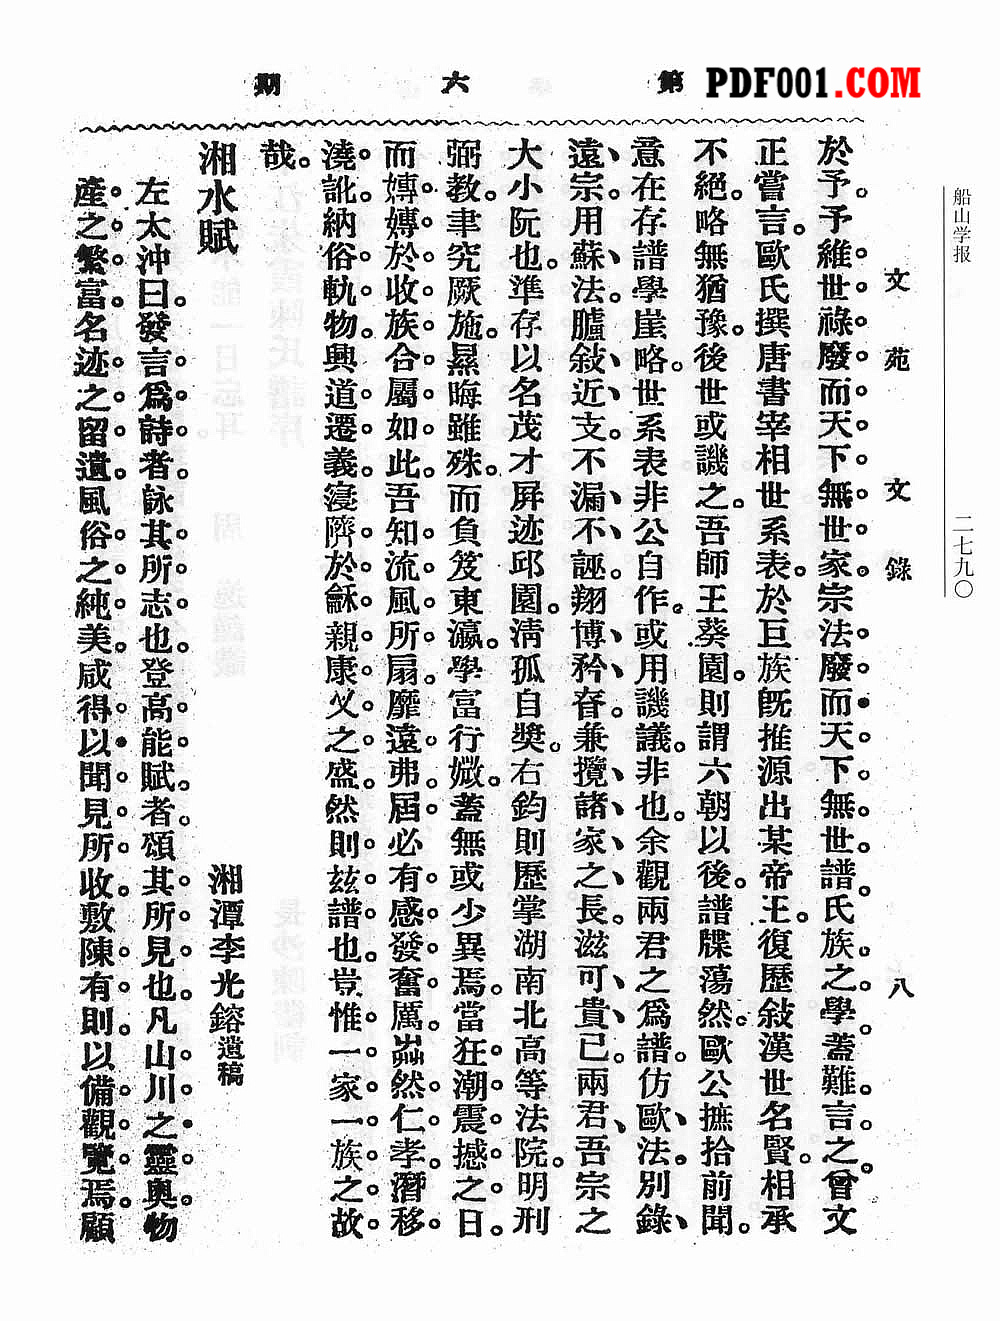 第六期
PDF001.COM
船山学报
二七九〇
文苑 文錄 八
於予。予維世祿廢而天下無世家宗法廢而天下無世譜氏族之學蓋難言之。曾文
正嘗言。歐氏撰唐書宰相世系表。於巨族旣推源出某帝王。復歷敍漢世名賢。相承
不絕。略無猶豫。後世或譏之。吾師王葵園則謂六朝以後。譜牒蕩然。歐公摭拾前聞。
意在存譜學崖略。世系表非公自作。或用譏議。非也。余觀兩君之爲譜。仿歐法。別錄、
遠宗。用蘇法。臚敍近支。不漏不誣。翔博矜眘。兼攬諸家之長。滋可貴已。兩君、吾宗之
大小阮也。準存以名茂才屛迹邱園。淸孤自奬。右鈞則歷掌湖南北高等法院。明刑
弼教。聿究厥施。㬎晦雖殊。而負笈東瀛。學富行媺。蓋無或少異焉。當狂潮震撼之日。
而嫥嫥於收族合屬如此。吾知流風所扇。靡遠弗屆。必有感發奮厲。蒸然仁孝。潛移。
澆訛。納俗軌物。興道遷義。寖隮於龢親康乂之盛。然則玆譜也。豈惟一家一族之故
哉。
湘水賦
湘潭李光鎔遺稿
左太沖曰。發言爲詩者。詠其所志也。登高能賦者。頌其所見也。凡山川之靈奧。物
產之繁富。名迹之留遺。風俗之純美。咸得以聞見所收。敷陳有則。以備觀覽焉。顧